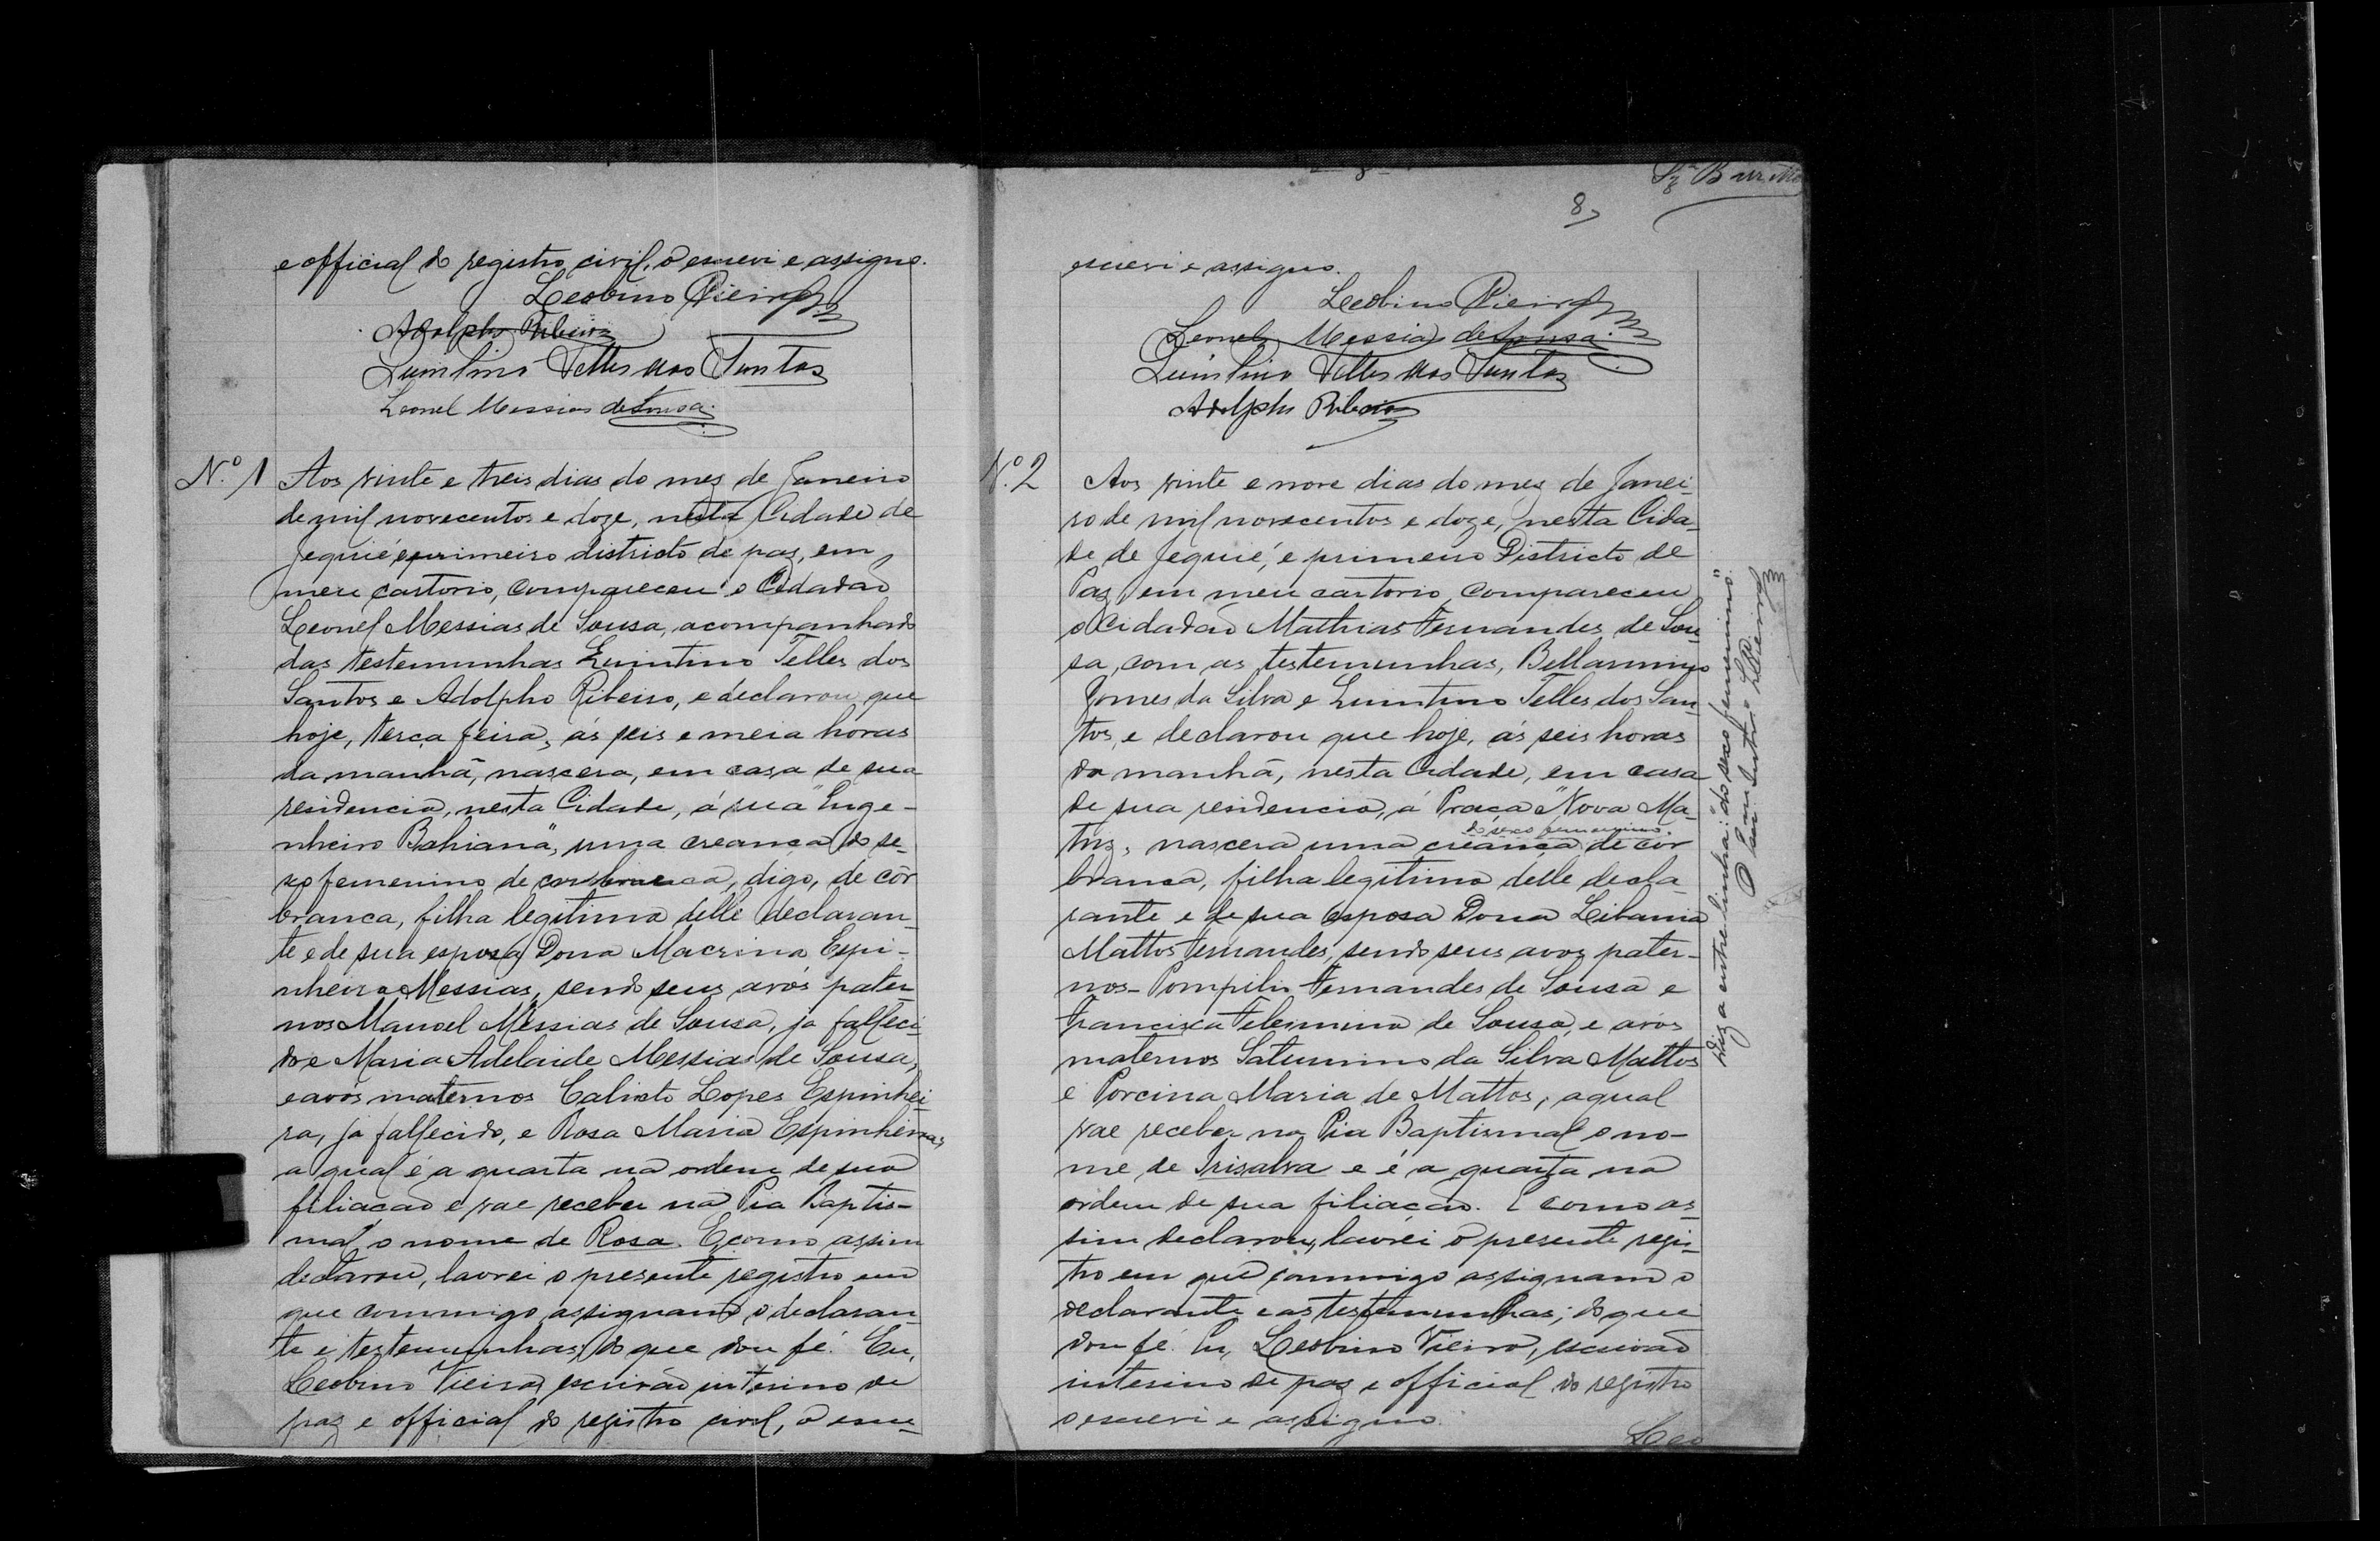 e official do registro civil, o escrevi e assigno.
Leobino Vieira
Adolpho Ribeiro
Quintino Telles dos Santos
Leonel Messias de Sousa.
Nº 1 Aos vinte e treis dias do mez de Janeiro
de mil novecentos e doze, nesta Cidade de
Jequié e primeiro districto de paz, em
meu cartorio, compareceu o Cidadão
Leonel Messias de Sousa, acompanhado
das testemunhas Quintino Telles dos
Santos e Adolpho Ribeiro, e declarou que
hoje, terça feira, ás seis e meia horas
da manhã, nascera, em casa de sua
residencia, nesta Cidade, á rua "Enge-
nheiro Bahiana", uma creança do se-
xo femenino de cor branca, digo, de côr
branca, filha legitima delle declaran-
te e de sua esposa Dona Macrina Espi-
nheira Messias, sendo seus avós pater-
nos Manoel Messias de Sousa, ja falleci-
do e Maria Adelaide Messias de Sousa,
e avós maternos Calixto Lopes Espinhei-
ra, ja fallecido, e Rosa Maria Espinheira,
a qual é a quarta na ordem de sua
filiação e vae receber na Pia Baptis-
mal o nome de Rosa. E como assim
declarou, lavrei o presente registro em
que commigo assignam o declaran-
te e testemunhas, do que dou fé. Eu,
Leobino Vieira, escrivão interino de
paz e official do registro civil, o escre-
8
escrevi e assigno.
Leobino Vieira
Leonel Messias de Sousa.
Quintino Telles dos Santos
Adolpho Ribeiro
Nº 2 Aos vinte e nove dias do mez de Janei-
ro de mil novecentos e doze, nesta Cida-
de de Jequié, e primeiro Districto de
Paz, em meu cartorio, compareceu
o Cidadão Mathias Fernandes de Sou-
sa, com as testemunhas, Bellarmino
Gomes da Silva e Quintino Telles dos San-
tos, e declarou que hoje, ás seis horas
da manhã, nesta Cidade, em casa
de sua residencia, á Praça "Nova Ma-
do sexo femenino.
triz, nascera uma creança de côr
branca, filha legitima delle decla-
rante e de sua esposa Dona Libania
Mattos Fernandes, sendo seus avós pater-
nos - Pompilio Fernandes de Sousa e
Francisca Felismina de Sousa, e avós
maternos Saturnino da Silva Mattos
e Porcina Maria de Mattos, a qual
vae receber na Pia Baptismal o no-
me de Irisalva e é a quarta na
ordem de sua filiação. E como as-
sim declarou, lavrei o presente regis-
tro em que commigo assignam o
declarante e as testemunhas; do que
dou fé. Eu, Leobino Vieira, escrivão
interino de paz e official do registro
o escrevi e assigno.
Leo
Diz a entre linha: "do sexo femenino."